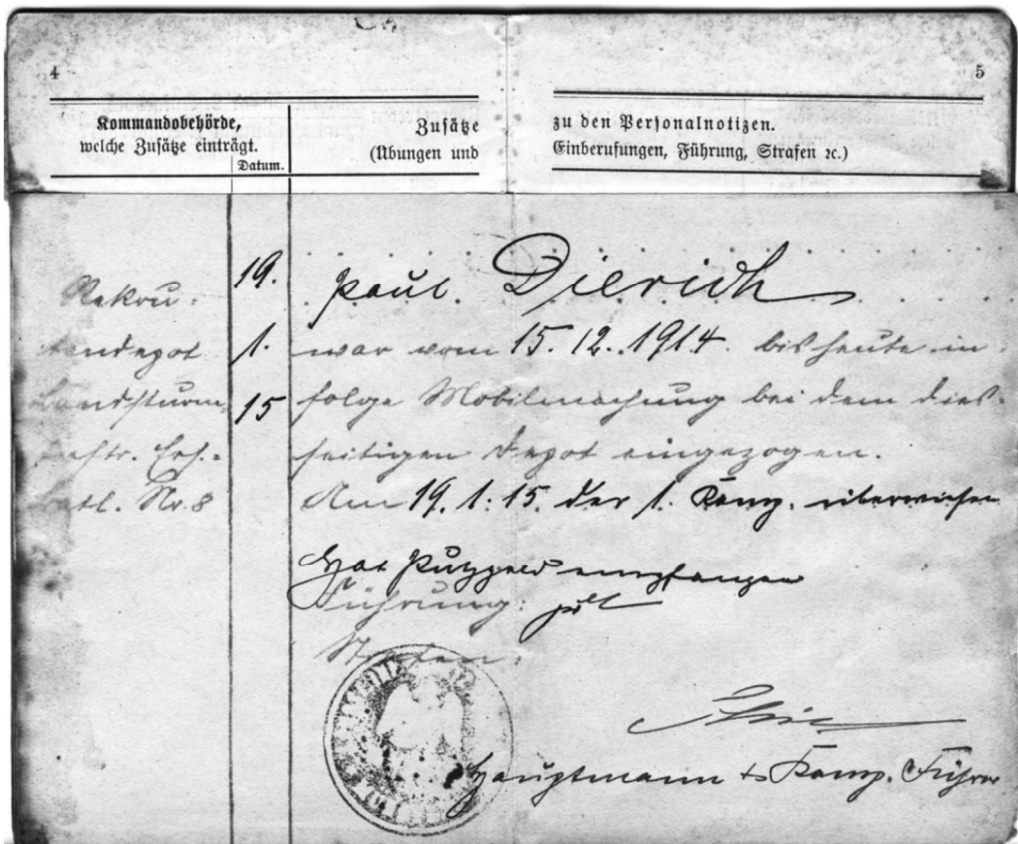 4
5
Kommandobehörde,
welche Zusätze einträgt.
Datum.
Zusätze
zu den Personalnotizen.
(Übungen und
Einberufungen, Führung, Strafen ꝛc.)
Rekru-
tendepot
Landsturm
Inftr. Ers.-
Batl. Nr. 8
19.
1.
15
Paul Dierich
war vom 15.12.1914 bis heute in
folge Mobilmachung bei dem dies-
seitigen Depot eingezogen.
Am 19.1.15. der 1. Komp. überwiesen
Hat Putzgeld empfangen
Führung: gut
Strafen:
Hauptmann u. Komp. Führer